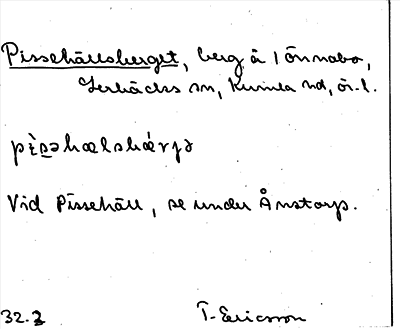 Pissehällsberget, berg å 1 Önnabo,
Lerbäcks sn, Kumla hd, ör.l.
pìsəhælsbǽrjə
Vid Pissehäll, se under Ånstorp.
32.2 T. Ericsson